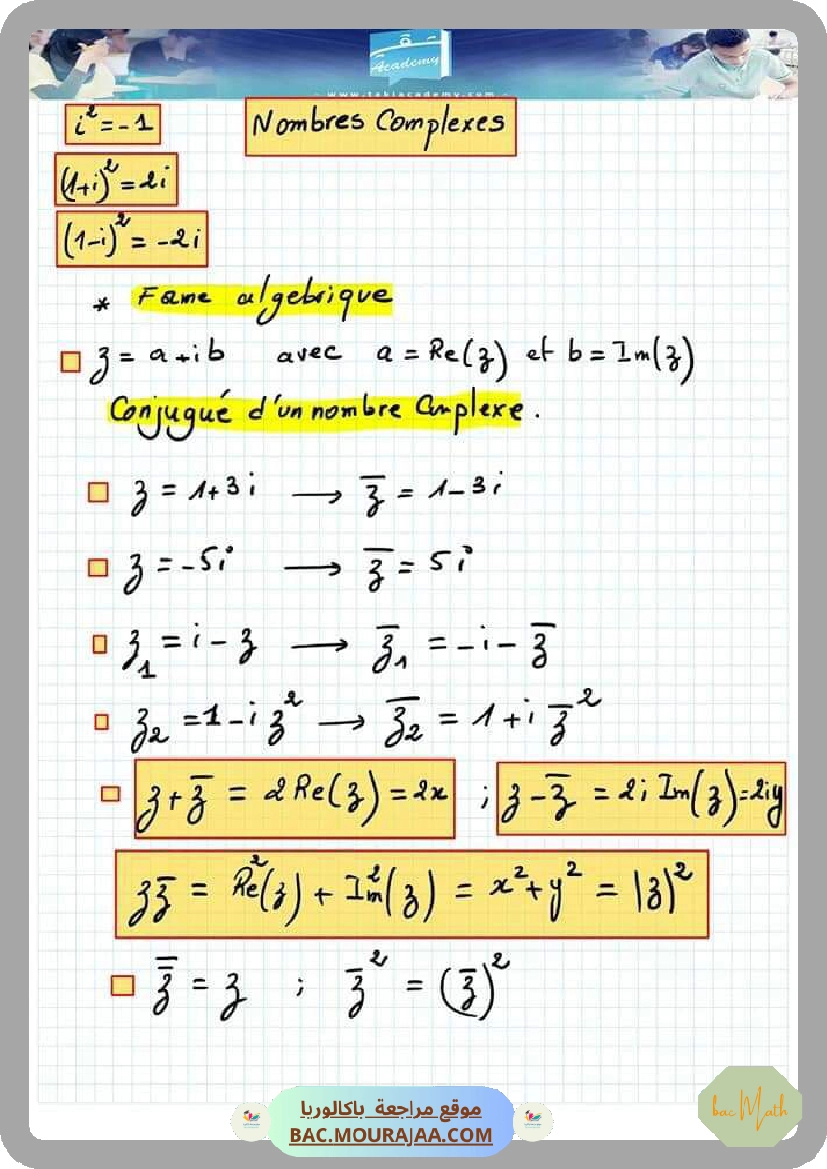 Academy
www.takiacademy.com
i² = -1
Nombres Complexes
(1+i)² = 2i
(1-i)² = -2i
* Forme algebrique
z = a+ib avec a = Re(z) et b = Im(z)
Conjugué d'un nombre Complexe.
z = 1+3i → z̅ = 1-3i
z = -5i → z̅ = 5i
z₁ = i - z → z̅₁ = -i - z̅
z₂ = 1-i z² → z̅₂ = 1+i z̅²
z + z̅ = 2 Re(z) = 2x ; z - z̅ = 2i Im(z) = 2iy
z z̅ = Re²(z) + Im²(z) = x² + y² = |z|²
z̅̅ = z ; z̅² = (z̅)²
موقع مراجعة باكالوريا
BAC.MOURAJAA.COM
bac Math